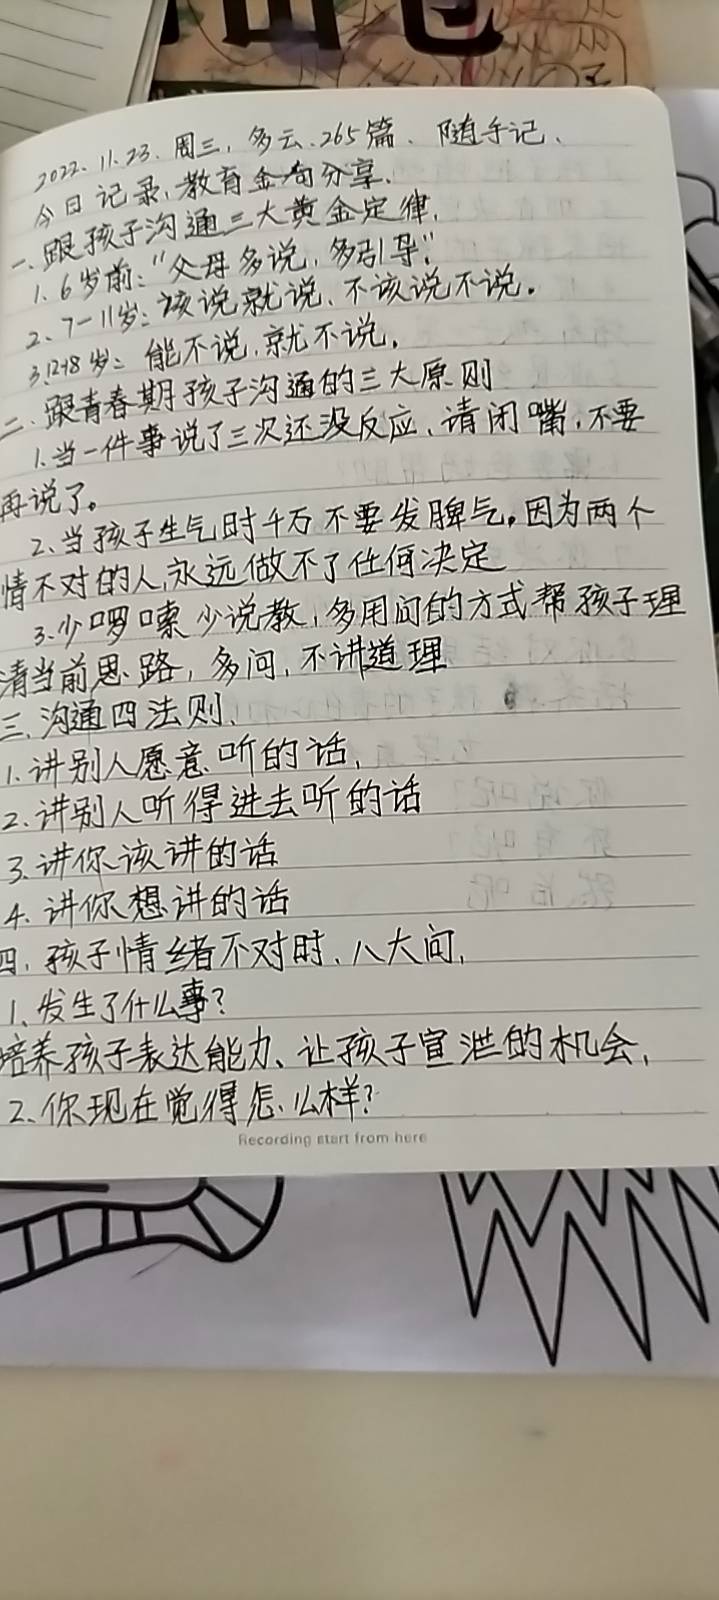 2022.11.23.周三,多云.265篇、随手记、
今日记录,教育金句分享.
一、跟孩子沟通三大黄金定律,
1.6岁前:"父母多说,多引导."
2、7-11岁:该说就说、不该说不说.
3.12-18岁:能不说,就不说.
二、跟青春期孩子沟通的三大原则
1.当一件事说了三次还没反应、请闭嘴,不要
再说了。
2、当孩子生气时千万不要发脾气。因为两个
情不对的人,永远做不了任何决定
3.少啰嗦少说教,多用问的方式帮孩子理
清当前思路,多问,不讲道理
三、沟通四法则、
1.讲别人愿意听的话,
2.讲别人听得进去听的话
3.讲你该讲的话
4.讲你想讲的话
四,孩子情绪不对时、八大问,
1、发生了什么事?
培养孩子表达能力、让孩子宣泄的机会,
2、你现在觉得怎么样?
Recording start from here